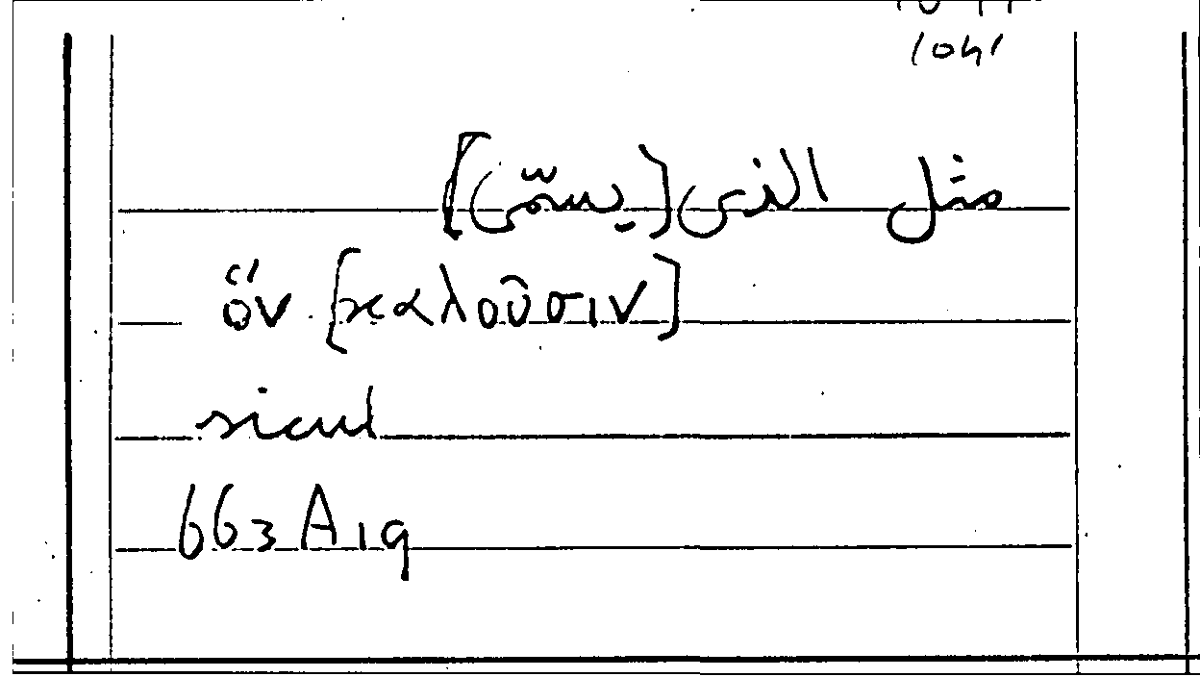 1041
مثل الذى [يسمّى]
ὅν [καλοῦσιν]
sicut
663 A 19